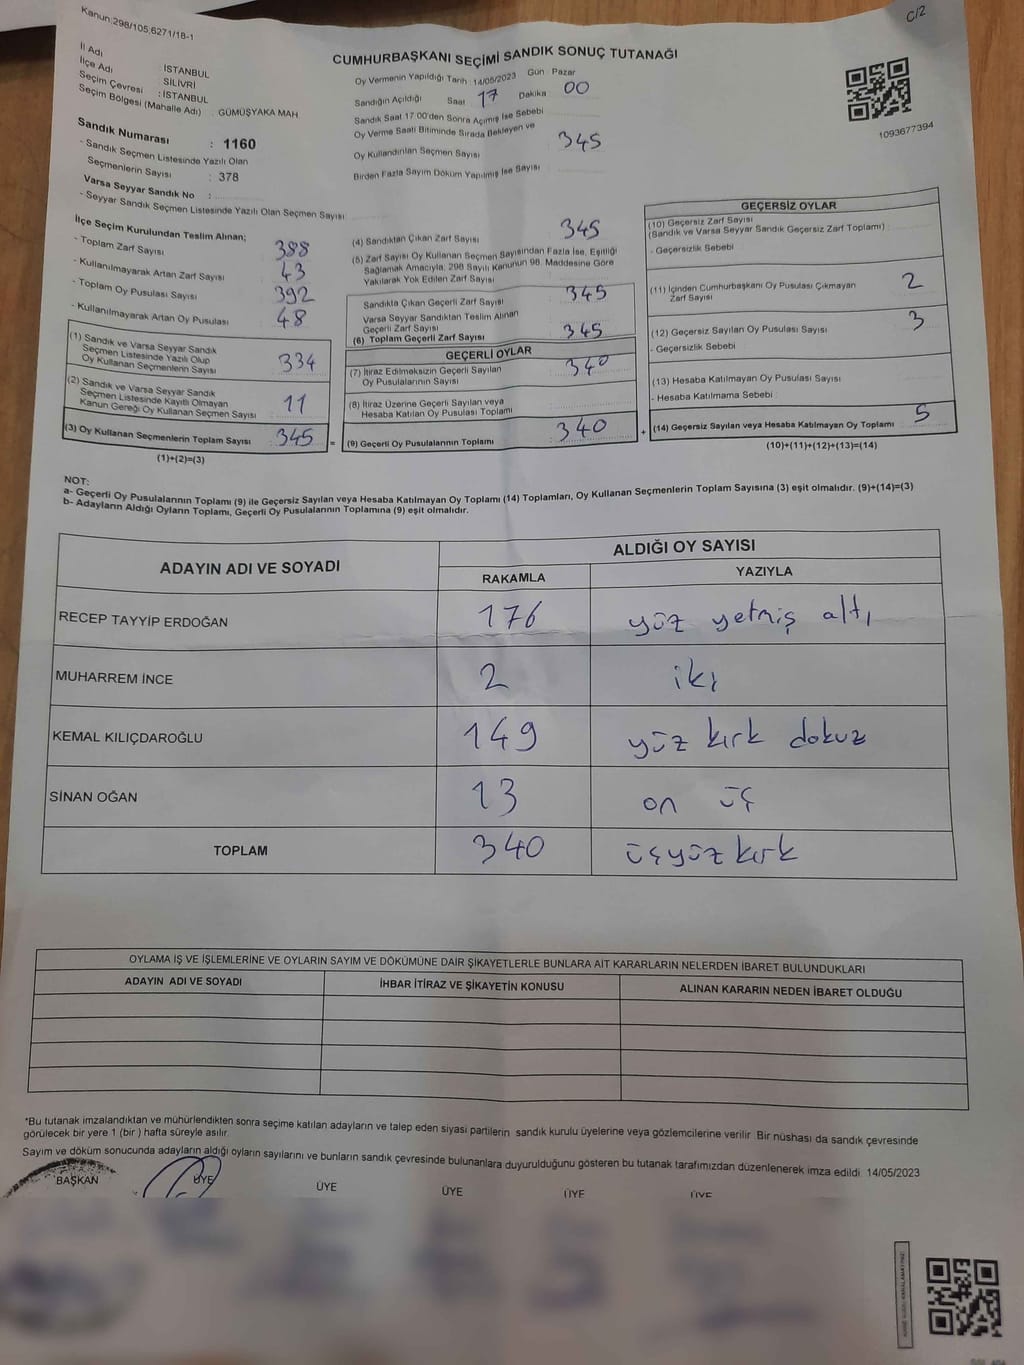 Kanun:298/105,6271/18-1
C/2
CUMHURBAŞKANI SEÇİMİ SANDIK SONUÇ TUTANAĞI
İl Adı : İSTANBUL
İlçe Adı : SİLİVRİ
Seçim Çevresi : İSTANBUL
Seçim Bölgesi (Mahalle Adı) : GÜMÜŞYAKA MAH
Sandık Numarası : 1160
- Sandık Seçmen Listesinde Yazılı Olan
Seçmenlerin Sayısı : 378
Varsa Seyyar Sandık No :
- Seyyar Sandık Seçmen Listesinde Yazılı Olan Seçmen Sayısı:
Oy Vermenin Yapıldığı Tarih : 14/05/2023 Gün Pazar
Sandığın Açıldığı Saat 17 Dakika 00
Sandık Saat 17:00'den Sonra Açımış İse Sebebi
Oy Verme Saati Bitiminde Sırada Bekleyen ve
Oy Kullandırılan Seçmen Sayısı 345
Birden Fazla Sayım Döküm Yapılmış İse Sayısı
1093677394
İlçe Seçim Kurulundan Teslim Alınan;
- Toplam Zarf Sayısı : 388
- Kullanılmayarak Artan Zarf Sayısı : 43
- Toplam Oy Pusulası Sayısı : 392
- Kullanılmayarak Artan Oy Pusulası : 48
(1) Sandık ve Varsa Seyyar Sandık
Seçmen Listesinde Yazılı Olup
Oy Kullanan Seçmenlerin Sayısı : 334
(2) Sandık ve Varsa Seyyar Sandık
Seçmen Listesinde Kayıtlı Olmayan
Kanun Gereği Oy Kullanan Seçmen Sayısı : 11
(3) Oy Kullanan Seçmenlerin Toplam Sayısı : 345 =
(1)+(2)=(3)
(4) Sandıktan Çıkan Zarf Sayısı : 345
(5) Zarf Sayısı Oy Kullanan Seçmen Sayısından Fazla İse, Eşitliği
Sağlamak Amacıyla; 298 Sayılı Kanunun 98. Maddesine Göre
Yakılarak Yok Edilen Zarf Sayısı
Sandıkla Çıkan Geçerli Zarf Sayısı : 345
Varsa Seyyar Sandıktan Teslim Alınan
Geçerli Zarf Sayısı
(6) Toplam Geçerli Zarf Sayısı : 345
GEÇERLİ OYLAR
(7) İtiraz Edilmeksizin Geçerli Sayılan
Oy Pusulalarının Sayısı : 340
(8) İtiraz Üzerine Geçerli Sayılan veya
Hesaba Katılan Oy Pusulası Toplamı
(9) Geçerli Oy Pusulalarının Toplamı : 340 +
GEÇERSİZ OYLAR
(10) Geçersiz Zarf Sayısı
(Sandık ve Varsa Seyyar Sandık Geçersiz Zarf Toplamı) :
- Geçersizlik Sebebi :
(11) İçinden Cumhurbaşkanı Oy Pusulası Çıkmayan
Zarf Sayısı : 2
(12) Geçersiz Sayılan Oy Pusulası Sayısı : 3
- Geçersizlik Sebebi :
(13) Hesaba Katılmayan Oy Pusulası Sayısı :
- Hesaba Katılmama Sebebi :
(14) Geçersiz Sayılan veya Hesaba Katılmayan Oy Toplamı : 5
(10)+(11)+(12)+(13)=(14)
NOT:
a- Geçerli Oy Pusulalarının Toplamı (9) ile Geçersiz Sayılan veya Hesaba Katılmayan Oy Toplamı (14) Toplamları, Oy Kullanan Seçmenlerin Toplam Sayısına (3) eşit olmalıdır. (9)+(14)=(3)
b- Adayların Aldığı Oyların Toplamı, Geçerli Oy Pusulalarının Toplamına (9) eşit olmalıdır.
ADAYIN ADI VE SOYADI ALDIĞI OY SAYISI
RAKAMLA YAZIYLA
RECEP TAYYİP ERDOĞAN 176 yüz yetmiş altı
MUHARREM İNCE 2 iki
KEMAL KILIÇDAROĞLU 149 yüz kırk dokuz
SİNAN OĞAN 13 on üç
TOPLAM 340 üçyüz kırk
OYLAMA İŞ VE İŞLEMLERİNE VE OYLARIN SAYIM VE DÖKÜMÜNE DAİR ŞİKAYETLERLE BUNLARA AİT KARARLARIN NELERDEN İBARET BULUNDUKLARI
ADAYIN ADI VE SOYADI İHBAR İTİRAZ VE ŞİKAYETİN KONUSU ALINAN KARARIN NEDEN İBARET OLDUĞU
*Bu tutanak imzalandıktan ve mühürlendikten sonra seçime katılan adayların ve talep eden siyasi partilerin sandık kurulu üyelerine veya gözlemcilerine verilir. Bir nüshası da sandık çevresinde
görülecek bir yere 1 (bir ) hafta süreyle asılır.
Sayım ve döküm sonucunda adayların aldığı oyların sayılarını ve bunların sandık çevresinde bulunanlara duyurulduğunu gösteren bu tutanak tarafımızdan düzenlenerek imza edildi. 14/05/2023
BAŞKAN ÜYE ÜYE ÜYE ÜYE ÜYE